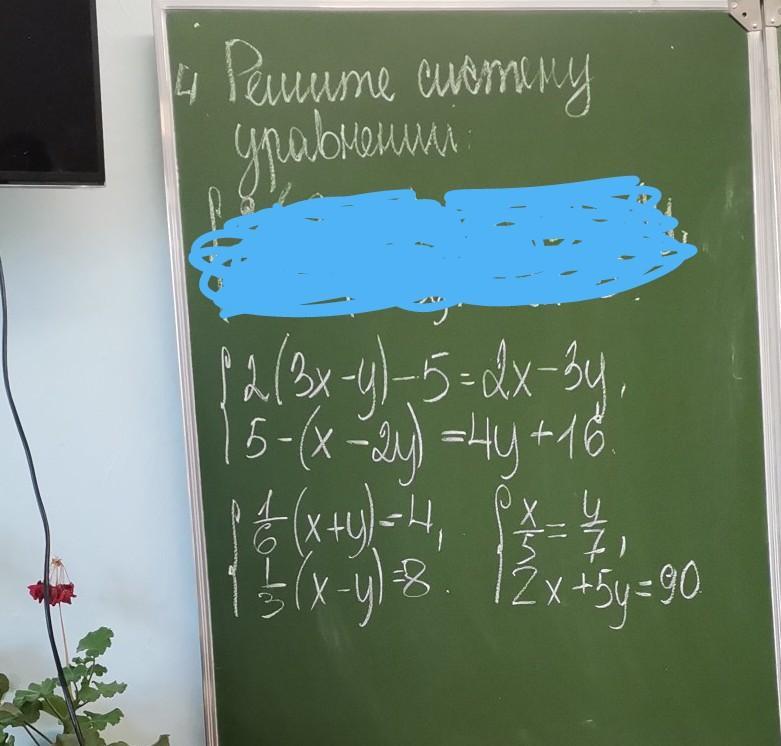 4 Решите систему
уравнений:
2(3x-y)-5=2x-3y,
5-(x-2y)=4y+16.
1/6(x+y)=4, x/5=y/7,
1/3(x-y)=8. 2x+5y=90